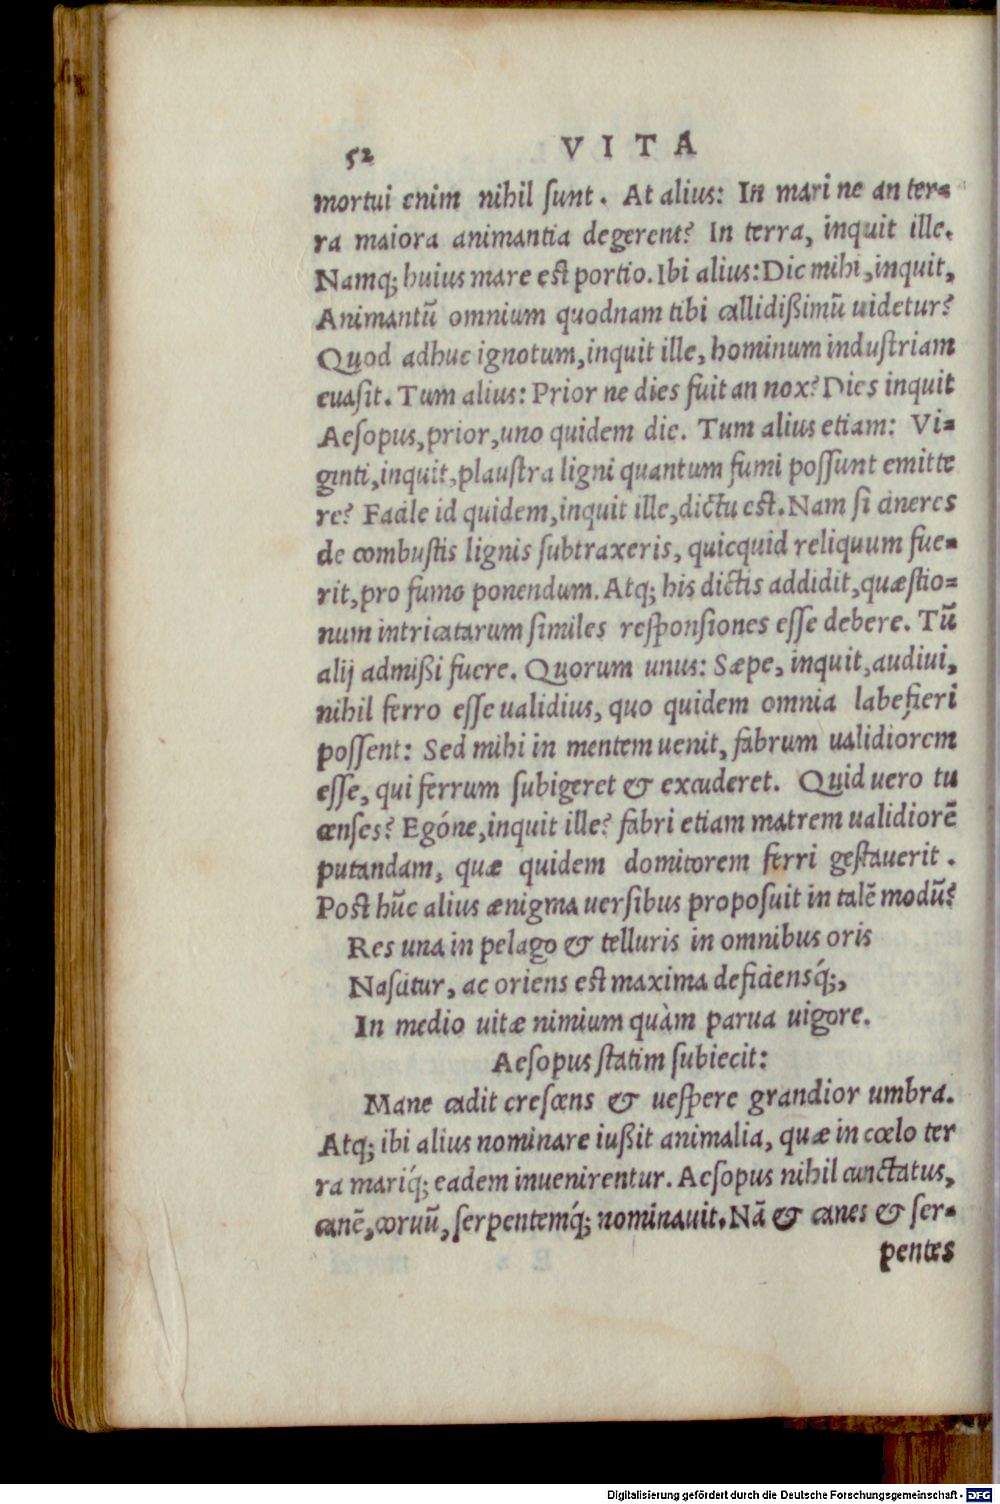 52 VITA
mortui enim nihil ſunt. At alius: In mari ne an ter=
ra maiora animantia degerent? In terra, inquit ille.
Namq; huius mare est portio. Ibi alius: Dic mihi, inquit,
Animantū omnium quodnam tibi callidißimū uidetur?
Quod adhuc ignotum, inquit ille, hominum induſtriam
euaſit. Tum alius: Prior ne dies fuit an nox? Dies inquit
Aeſopus, prior, uno quidem die. Tum alius etiam: Vi=
ginti, inquit, plauſtra ligni quantum fumi poſſunt emitte
re? Facile id quidem, inquit ille, dictu est. Nam ſi cineres
de combuſtis lignis ſubtraxeris, quicquid reliquum fue=
rit, pro fumo ponendum. Atq; his dictis addidit, quæſtio=
num intricatarum ſimiles reſponſiones eſſe debere. Tū
alij admißi fuere. Quorum unus: Sæpe, inquit, audiui,
nihil ferro eſſe ualidius, quo quidem omnia labefieri
poſſent: Sed mihi in mentem uenit, fabrum ualidiorem
eſſe, qui ferrum ſubigeret & excuderet. Quid uero tu
cenſes? Egóne, inquit ille? fabri etiam matrem ualidiorē
putandam, quæ quidem domitorem ferri geſtauerit.
Poſt hūc alius ænigma uerſibus propoſuit in talē modū?
Res una in pelago & telluris in omnibus oris
Naſcitur, ac oriens est maxima deficiensq́;,
In medio uitæ nimium quàm parua uigore.
Aeſopus ſtatim ſubiecit:
Mane cadit creſcens & ueſpere grandior umbra.
Atq; ibi alius nominare iußit animalia, quæ in cœlo ter
ra mariq́; eadem inuenirentur. Aeſopus nihil cunctatus,
canē, coruū, ſerpentemq́; nominauit. Nā & canes & ſer=
pentes
Digitalisierung gefördert durch die Deutsche Forschungsgemeinschaft - DFG